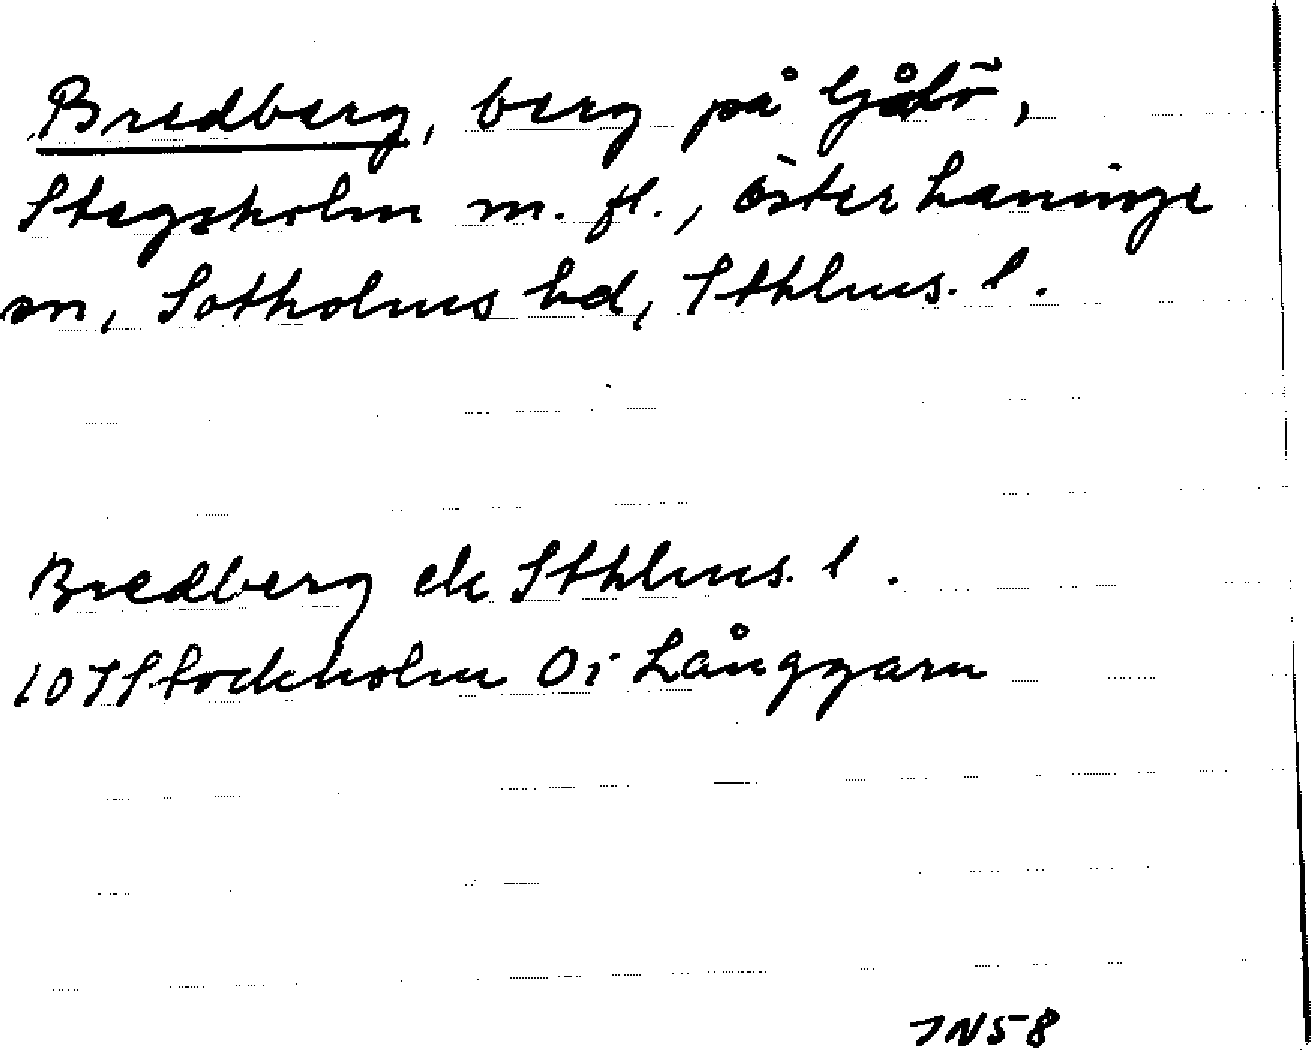 Bredberg, berg på Gålö,
Stegsholm m. fl., österhaninge
sn, Sotholms hd, Sthlms. l.
Bredberg ek Sthlms. l.
10 I Stockholm Oi Långgarn
JN58